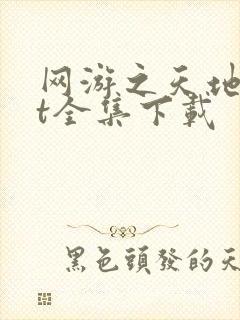 网游之天地
t全集下载
黑色頭發的天